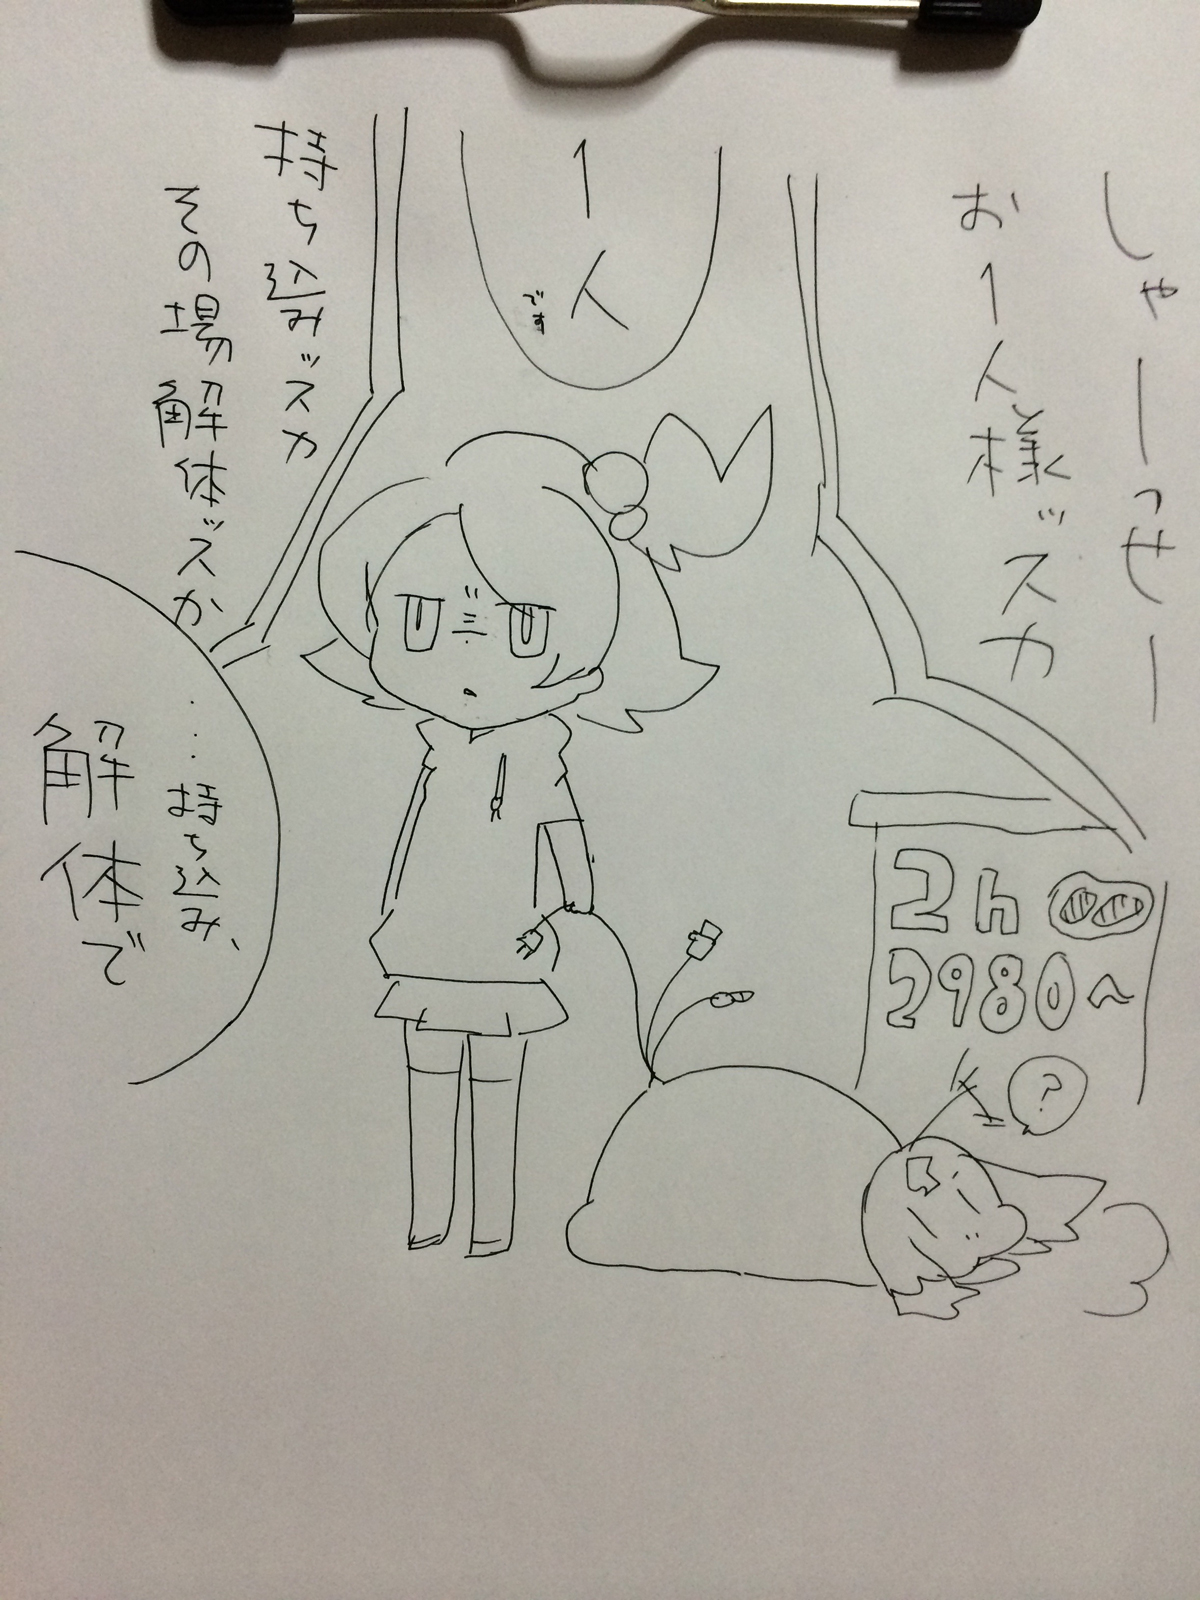 しゃーっせー
お1人様ッスカ
1人
です
持ち込みッスカ
その場解体ッスか
…持ち込み、
解体で
2h
2980~
?